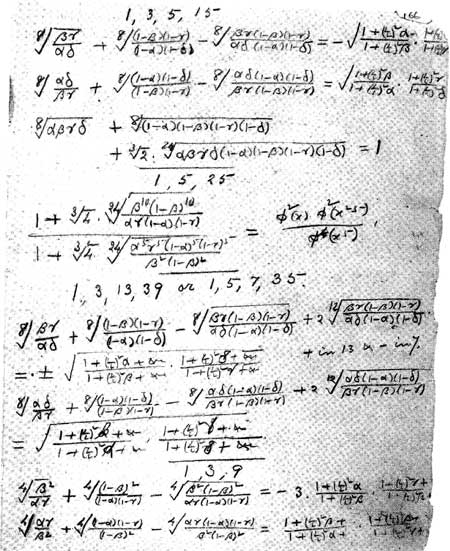 1, 3, 5, 15
⁸√(βγ/αδ) + ⁸√((1-β)(1-γ)/(1-α)(1-δ)) - ⁸√(βγ(1-β)(1-γ)/αδ(1-α)(1-δ)) = -√(1+(½)²α/1+(½)²β ·
⁸√(αδ/βγ) + ⁸√((1-α)(1-δ)/(1-β)(1-γ)) - ⁸√(αδ(1-α)(1-δ)/βγ(1-β)(1-γ)) = √(1+(½)²β/1+(½)²α · 1+(½)²γ/1+(½)²δ)
⁸√(αβγδ) + ⁸√((1-α)(1-β)(1-γ)(1-δ))
+ ³√2 · ²⁴√(αβγδ(1-α)(1-β)(1-γ)(1-δ)) = 1
1, 5, 25
(1 + ³√4 · ²⁴√(β¹⁰(1-β)¹⁰/αγ(1-α)(1-γ))) / (1 + ³√4 · ²⁴√(α⁵γ⁵(1-α)⁵(1-γ)⁵/β²(1-β)²)) =
1, 3, 13, 39 or 1, 5, 7, 35.
⁸√(βγ/αδ) + ⁸√((1-β)(1-γ)/(1-α)(1-δ)) - ⁸√(βγ(1-β)(1-γ)/αδ(1-α)(1-δ)) + 2 ¹²√(βγ(1-β)(1-γ)/αδ(1-α)(1-δ))
= ± √(1+(½)²α+&c/1+(½)²β+&c · + in 13 & - in 7.
⁸√(αδ/βγ) + ⁸√((1-α)(1-δ)/(1-β)(1-γ)) - ⁸√(αδ(1-α)(1-δ)/βγ(1-β)(1-γ)) + 2 ¹²√(αδ(1-α)(1-δ)/βγ(1-β)(1-γ))
=
1, 3, 9
⁴√(β²/αγ) + ⁴√((1-β)²/(1-α)(1-γ)) - ⁴√(β²(1-β)²/αγ(1-α)(1-γ)) = -3 · 1+(½)²α/1+(½)²β ·
⁴√(αγ/β²) + ⁴√((1-α)(1-γ)/(1-β)²) - ⁴√(αγ(1-α)(1-γ)/β²(1-β)²) = 1+(½)²β+/1+(½)²α+ ·